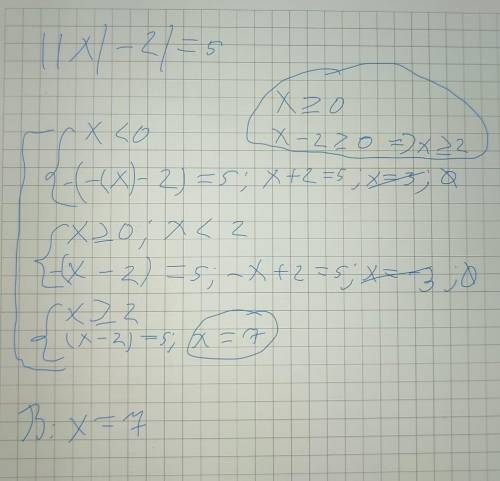 ||x| - 2| = 5
x ≥ 0
x - 2 ≥ 0 => x ≥ 2
x < 0
-(-(x) - 2) = 5; x + 2 = 5; x = 3; ∅
x ≥ 0; x < 2
-(x - 2) = 5; -x + 2 = 5; x = -3; ∅
x ≥ 2
(x - 2) = 5; x = 7
В: x = 7